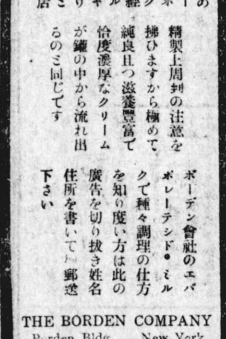 精製上周到の注意を
拂ひますから極めて
純良且つ滋養豐富で
恰度濃厚なクリーム
が鑵の中から流れ出
るのと同じです
ボーデン會社のエバ
ポレーテシド・ミル
クで種々調理の仕方
を知り度い方は此の
廣告を切り拔き姓名
住所を書いて 郵送
下さい
THE BORDEN COMPANY
Borden Bldg. New York